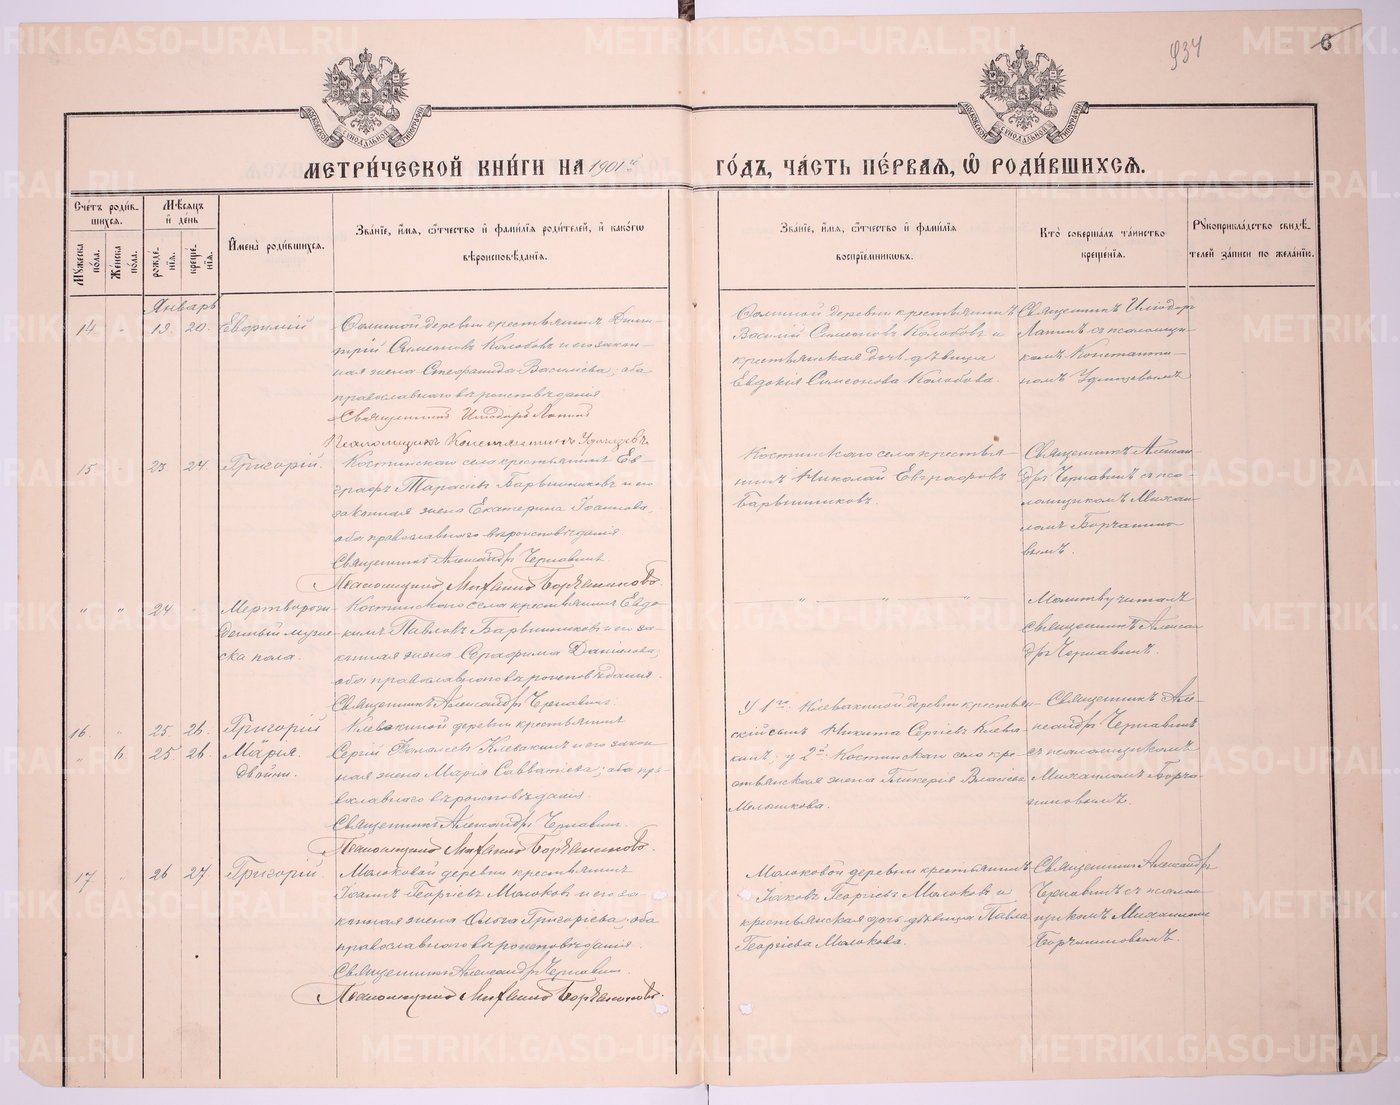 934
6
МЕТРИ́ЧЕСКОЙ КНИ́ГИ НА 1901й ГО́ДЪ, ЧА́СТЬ ПЕ́РВАЯ, Ѡ РОДИ́ВШИХСѦ.
Сче́тъ роди́в-
шихся.
Мѣ́сяцъ
и де́нь
Му́жеска
по́ла.
Же́нска
по́ла.
рожде-
нія.
креще-
нія.
Имена̀ роди́вшихся.
Зва́ніе, и́мя, о́тчество и фами́лія роди́телей, и како́гѡ
вѣроисповѣ́данія.
Зва́ніе, и́мя, о́тчество и фами́лія
воспріе́мникѡвъ.
Кто̀ соверша́лъ та́инство
креще́нія.
Рукоприкла́дство свидѣ́-
телей за́писи по жела́нію.
Январь
14 " 19. 20. Евѳимій
Ѳоминой деревни крестьянинъ Дими-
трій Симеоновъ Колобовъ и его закон-
ная жена Стефанида Василіева; оба
православнаго вѣроисповѣданія
Священникъ Иліодоръ Лапинъ
Псаломщикъ Константинъ Удинцевъ
Ѳоминой деревни крестьянинъ
Василій Симеоновъ Колобовъ и
крестьянская дочь дѣвица
Евдокія Симеонова Колобова.
Священникъ Иліодоръ
Лапинъ съ псаломщи-
комъ Константи-
номъ Удинцевымъ
15 " 23 24. Григорій.
Костинскаго села крестьянинъ Ев-
графъ Тарасіевъ Барышниковъ и его
законная жена Екатерина Іоаннова,
оба православнаго вѣроисповѣданія
Священникъ Александръ Чернавинъ
Псаломщикъ Михаилъ Борчаниновъ.
Костинскаго села крестья-
нинъ Николай Евграфовъ
Барышниковъ.
Священникъ Алексан-
дръ Чернавинъ съ пса-
ломщикомъ Михаи-
ломъ Борчанино-
вымъ.
" " 24 - Мертворож-
денный муже-
ска пола.
Костинскаго села крестьянинъ Евдо-
кимъ Павловъ Барышниковъ и его за-
конная жена Серафима Данилова,
оба православнаго вѣроисповѣданія.
Священникъ Александръ Чернавинъ.
" " "
Молитву читалъ
священникъ Алексан-
дръ Чернавинъ.
16 " 25 26. Григорій
" 6 25 26. Марія
двойни.
Клевакиной деревни крестьянинъ
Сергій Фалалеевъ Клевакинъ и его закон-
ная жена Марія Савватіева; оба пра-
вославнаго вѣроисповѣданія.
Священникъ Александръ Чернавинъ.
Псаломщикъ Михаилъ Борчаниновъ.
У 1го Клевакиной деревни крестьян-
скій сынъ Никита Сергіевъ Клева-
кинъ, у 2й Костинскаго села кре-
стьянская жена Гликерія Власіева
Мельникова.
Священникъ Але-
ксандръ Чернавинъ
съ псаломщикомъ
Михаиломъ Борча-
ниновымъ.
17 " 26 27 Григорій.
Молоковой деревни крестьянинъ
Іоаннъ Георгіевъ Молоковъ и его за-
конная жена Ольга Григоріева; оба
православнаго вѣроисповѣданія.
Священникъ Александръ Чернавинъ.
Псаломщикъ Михаилъ Борчаниновъ.
Молоковой деревни крестьянинъ
Іаковъ Георгіевъ Молоковъ и
крестьянская дочь дѣвица Павла
Георгіева Молокова.
Священникъ Александръ
Чернавинъ съ псалом-
щикомъ Михаиломъ
Борчаниновымъ.
METRIKI.GASO-URAL.RU